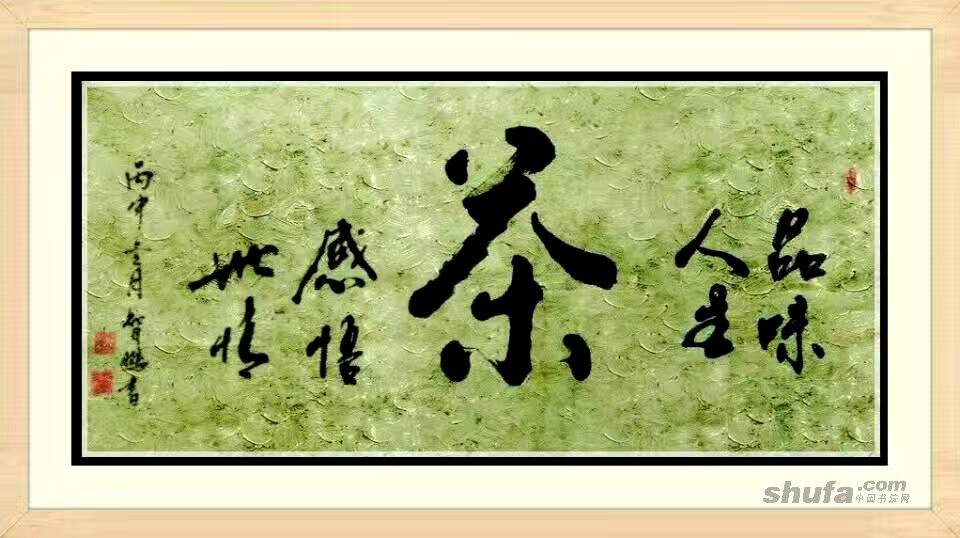 品味
人生
茶
感悟
世情
丙申三月智書
shufa.com
中国书法网